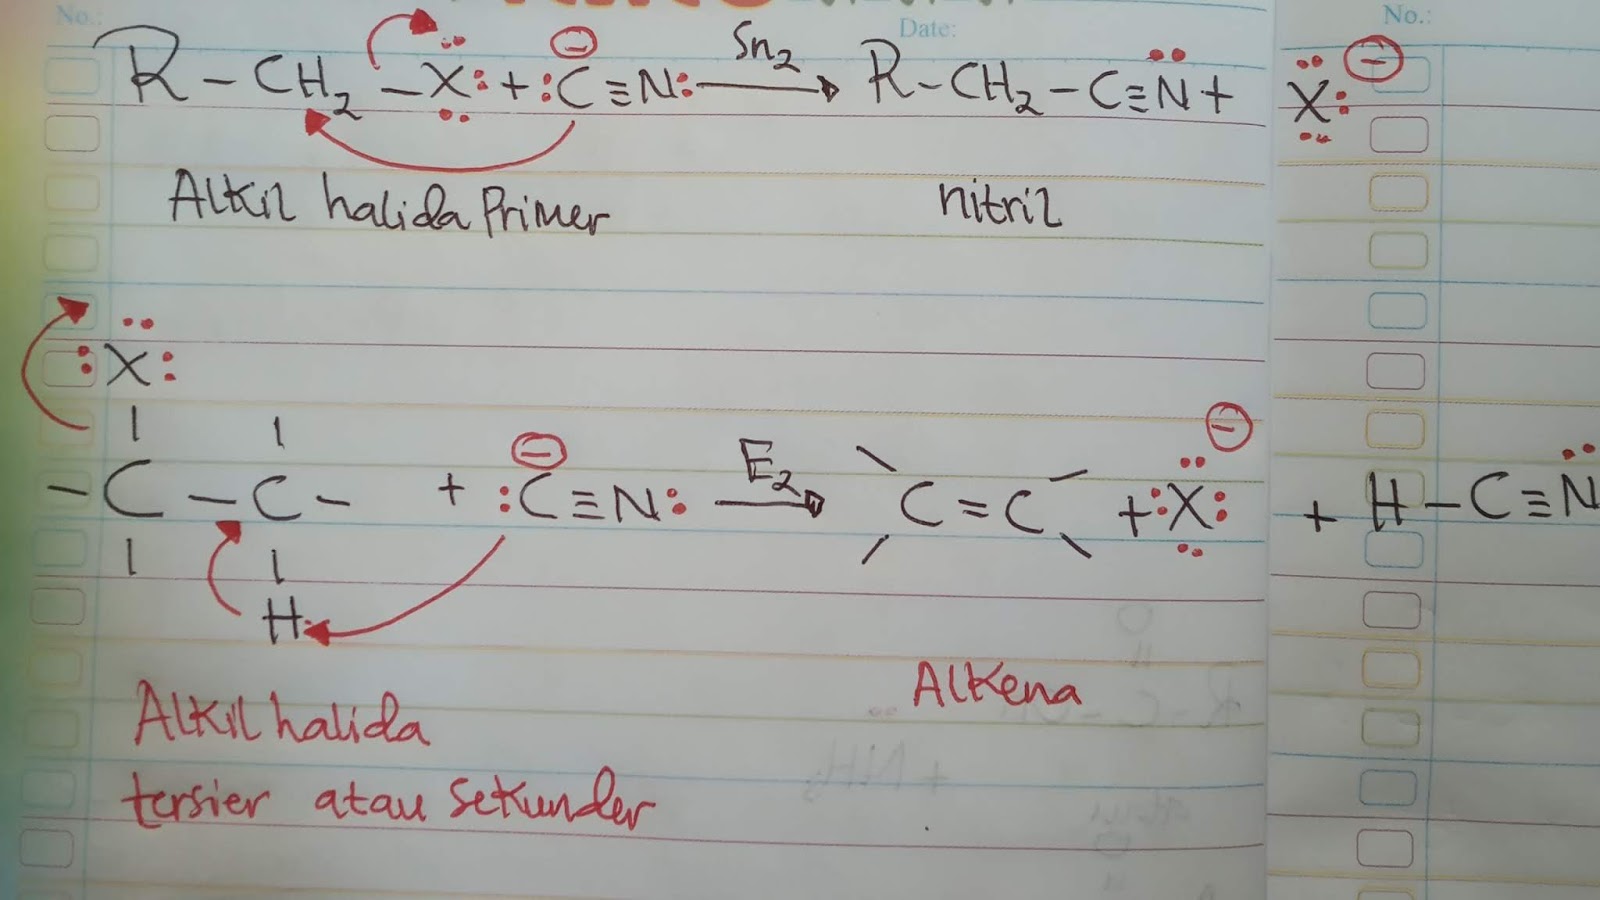 No.:
Date:
No.:
R-CH₂-X: + :C≡N: Sn₂ → R-CH₂-C≡N + X: ⊖
Alkil halida Primer
nitril
:X:
-C-C- + :C≡N: ⊖ E₂ → C=C + :X: ⊖ + H-C≡N
H
Alkil halida
tersier atau sekunder
Alkena